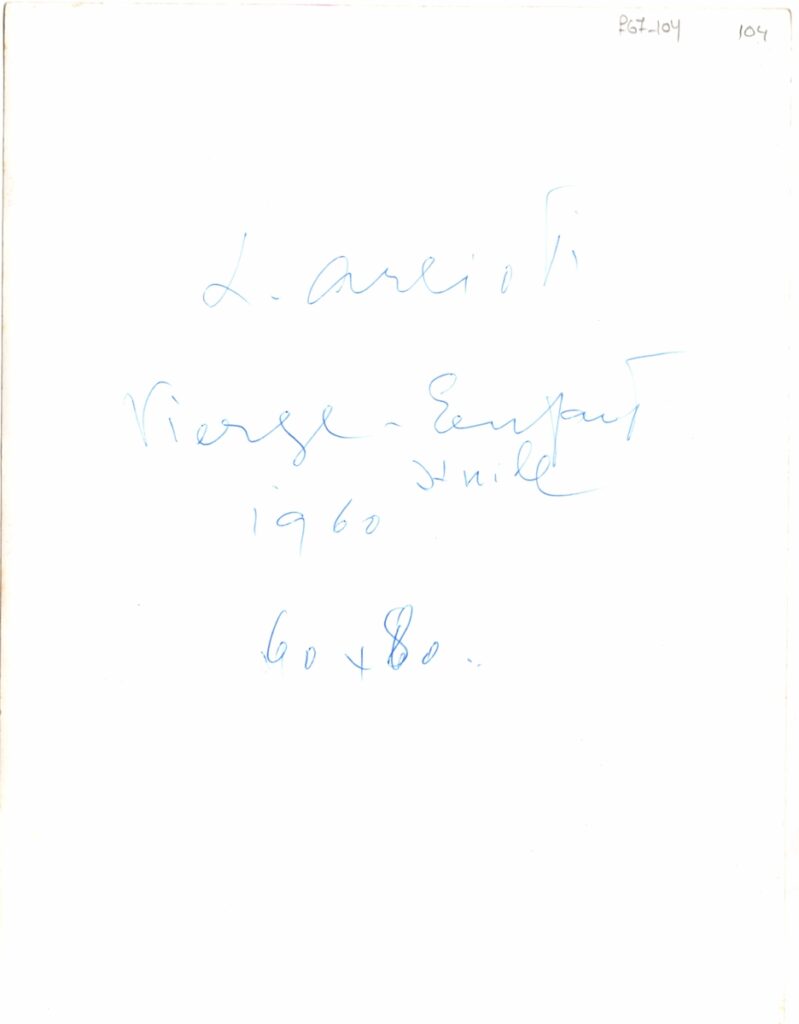 P67-104 104
L. Arcioti
Vierge - Eenfant
Huile
1960
60 x 80..